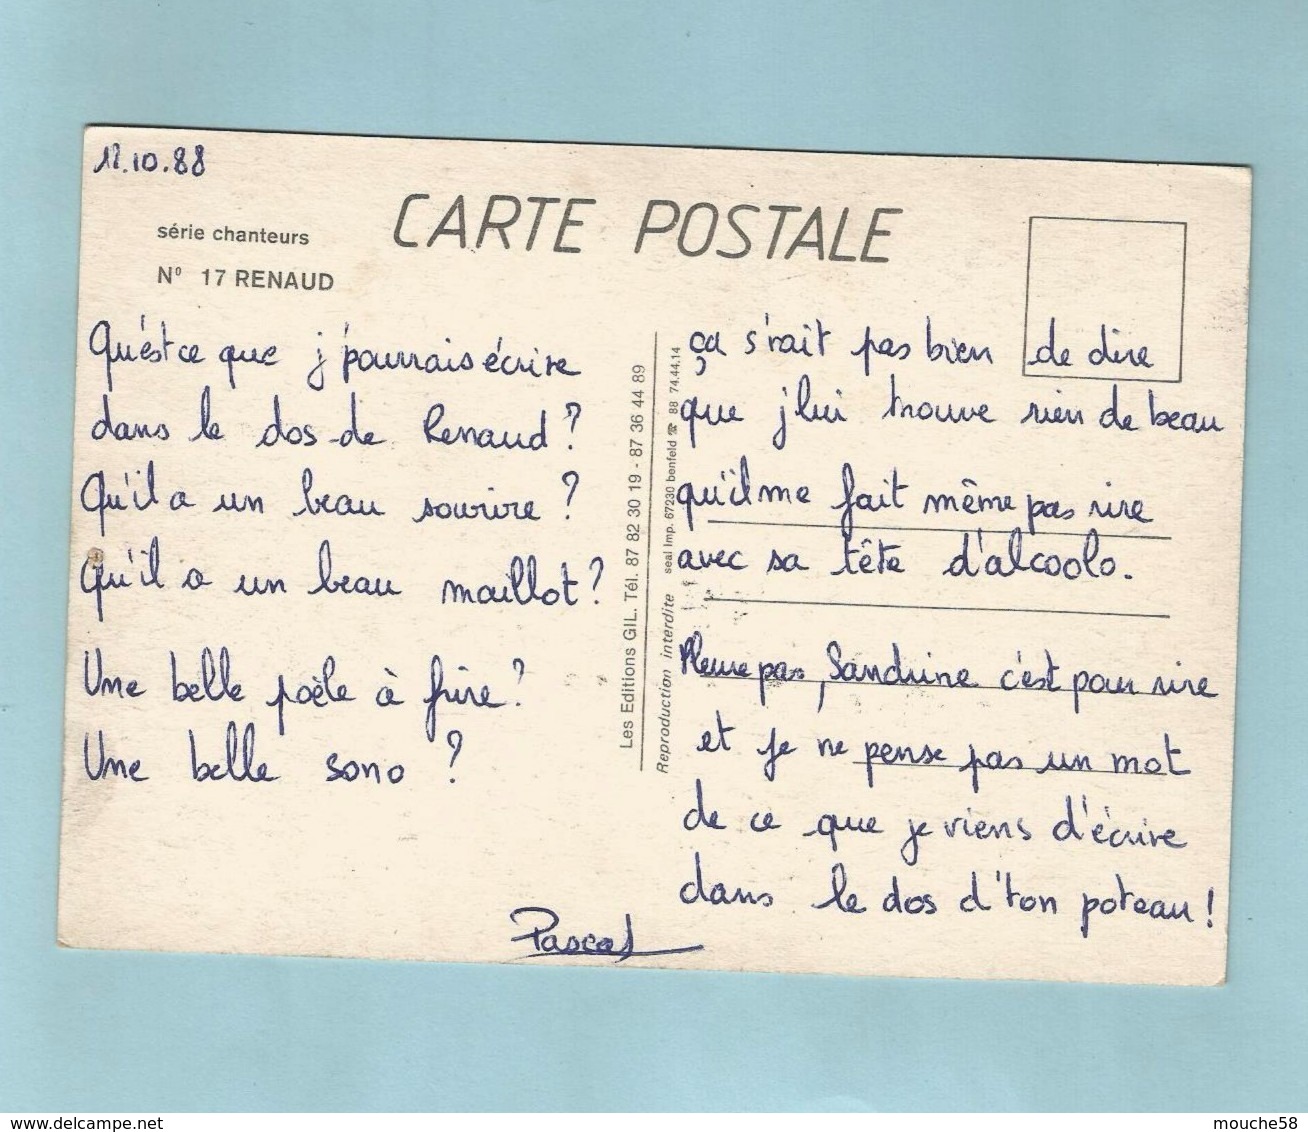 12.10.88
CARTE POSTALE
série chanteurs
N° 17 RENAUD
Qu'est ce que j'pourrais écrire
dans le dos de Renaud ?
Qu'il a un beau sourire ?
Qu'il a un beau maillot ?
Une belle poële à frire ?
Une belle sono ?
Pascal
Les Editions GIL. Tél. 87 82 30 19 - 87 36 44 89
Reproduction interdite seal Imp. 67230 benfeld ☎ 88 74.44.14
ça s'rait pas bien de dire
que j'lui trouve rien de beau
qu'il me fait même pas rire
avec sa tête d'alcoolo.
Pleure pas, Sandrine c'est pour rire
et je ne pense pas un mot
de ce que je viens d'écrire
dans le dos d'ton poteau !
www.delcampe.net
mouche58